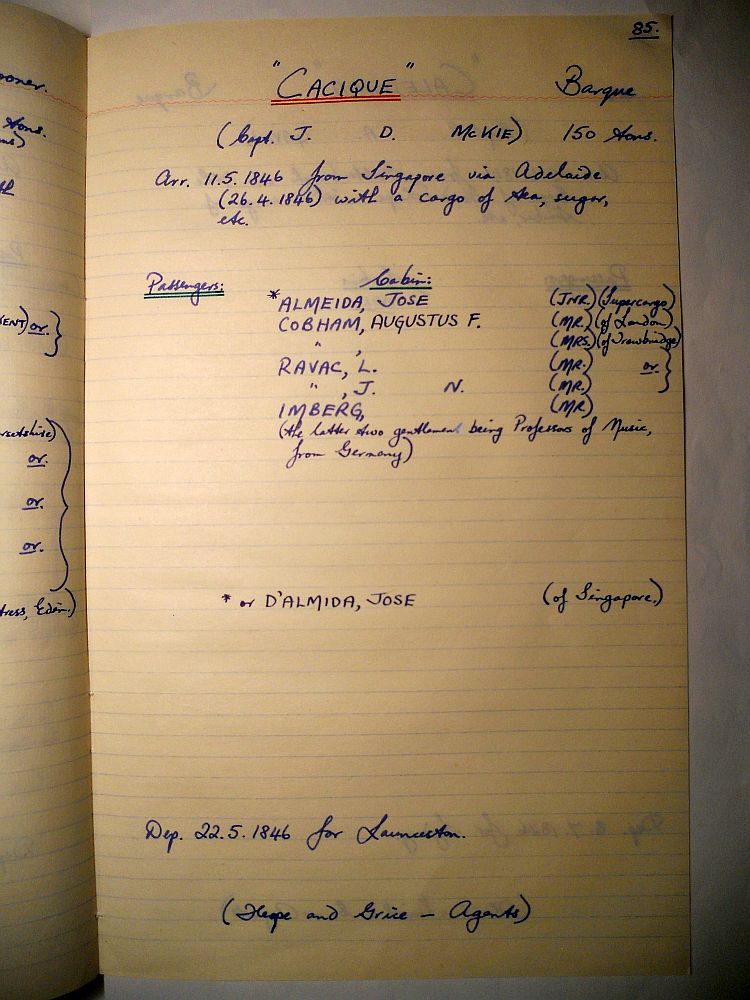 85.
"CACIQUE" Barque
(Capt. J. D. McKIE) 150 tons.
Arr. 11.5.1846 from Singapore via Adelaide
(26.4.1846) with a cargo of tea, sugar,
etc.
Passengers: Cabin:
*ALMEIDA, JOSE (JNR.) (Supercargo)
COBHAM, AUGUSTUS F. (MR.) (of London)
" , (MRS.) (of Trowbridge)
RAVAC, L. (MR.) or.
" , J. N. (MR.)
IMBERG, (MR)
(the latter two gentlemen being Professors of Music,
from Germany)
* or D'ALMIDA, JOSE (of Singapore.)
Dep. 22.5.1846 for Launceston.
(Heape and Grice - Agents)
ooner.
tons.
ENT) or.
or.
or.
or.
tress, Eden.)